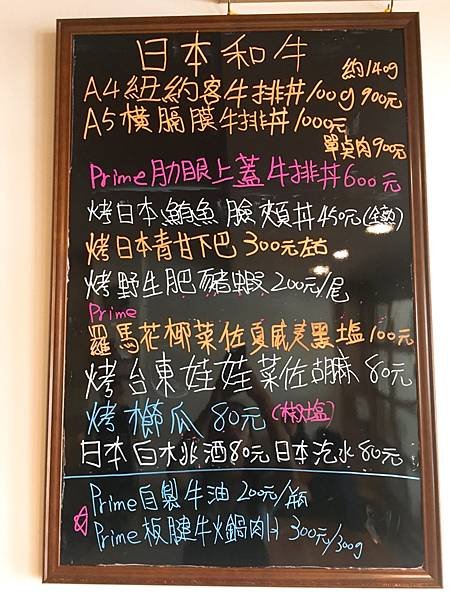 日本和牛
約140g
A4紐約客牛排丼100g900元
A5橫膈膜牛排丼1000元
單桌肉900元
Prime肋眼上蓋牛排丼600元
烤日本鮪魚臉頰丼450元(全熟)
烤日本青甘下巴300元左右
烤野生肥豬蝦200元/尾
Prime
羅馬花椰菜佐夏威夷黑塩100元
烤台東娃娃菜佐胡麻80元
烤櫛瓜80元(椒塩)
日本白木兆酒80元日本汽水80元
Prime自製牛油200元/瓶
Prime板腱牛火鍋肉片300元/300g